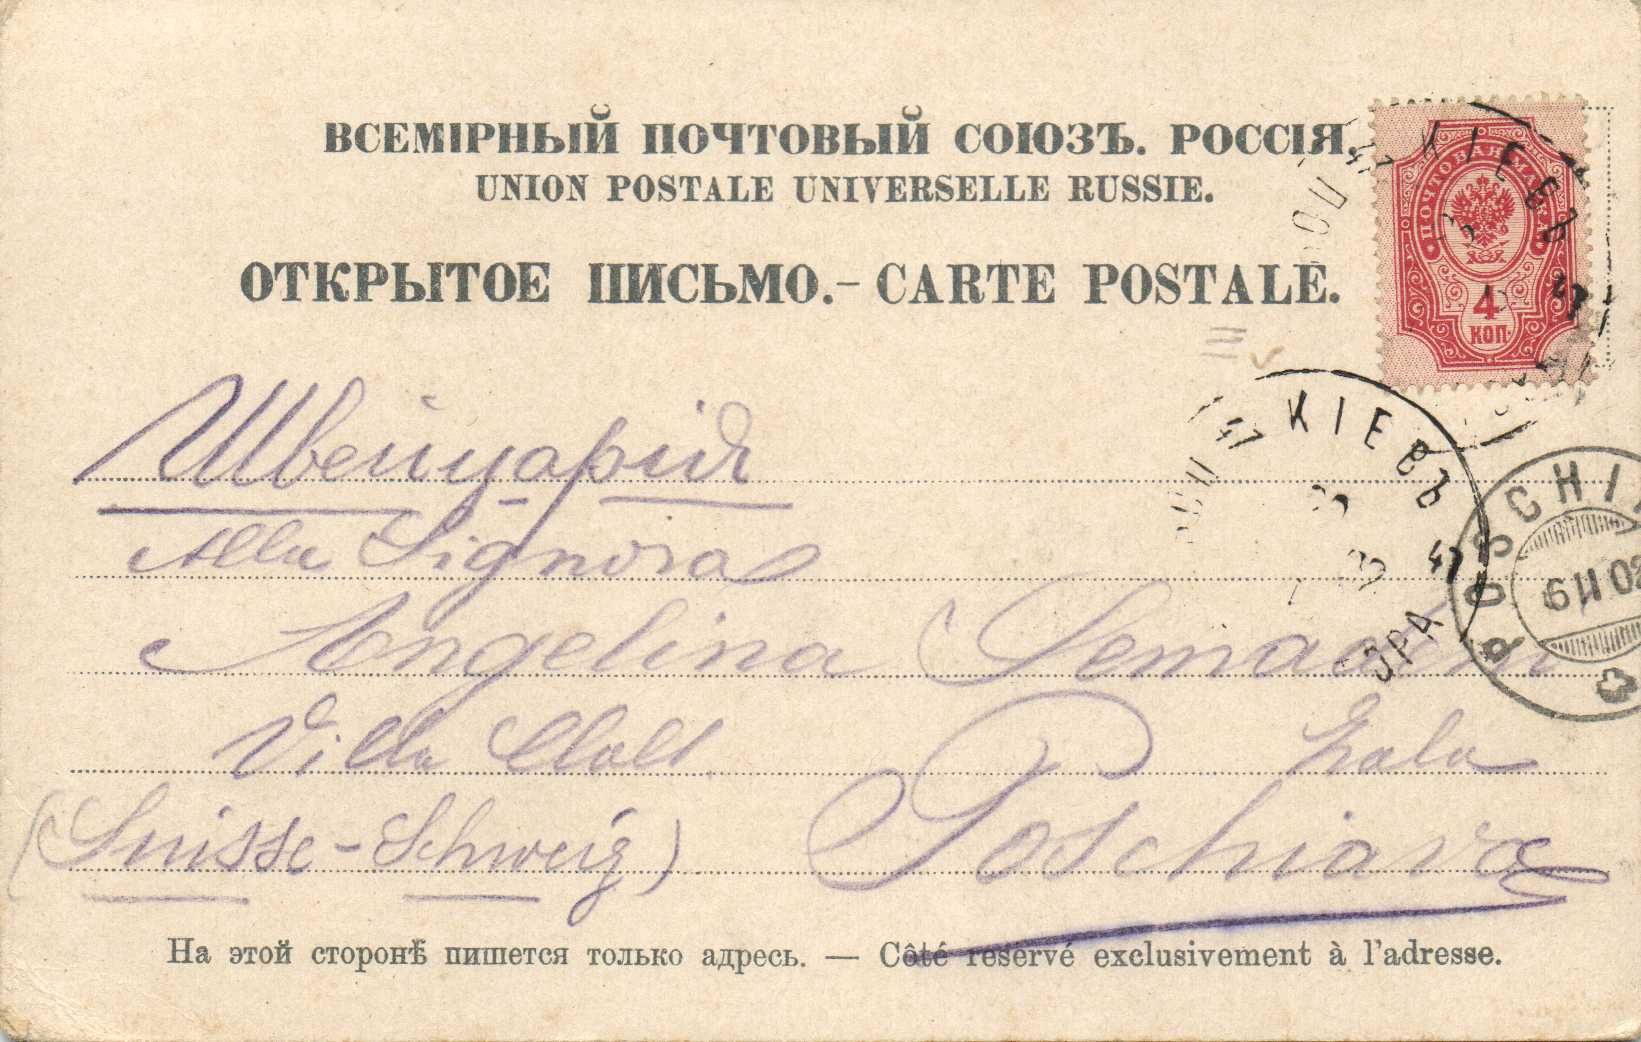 ВСЕМІРНЫЙ ПОЧТОВЫЙ СОЮЗЪ. РОССІЯ.
UNION POSTALE UNIVERSELLE RUSSIE.
ОТКРЫТОЕ ПИСЬМО.- CARTE POSTALE.
ПОЧТОВАЯ МАРКА
4
КОП.
КІЕВЪ
47
47
КІЕВЪ
47
POSCHI
Швейцарія
Alla Signora
Angelina Semadeni
Villa
(Suisse - Schweiz) Poschiavo
На этой сторонѣ пишется только адресъ. — Côté reservé exclusivement à l'adresse.